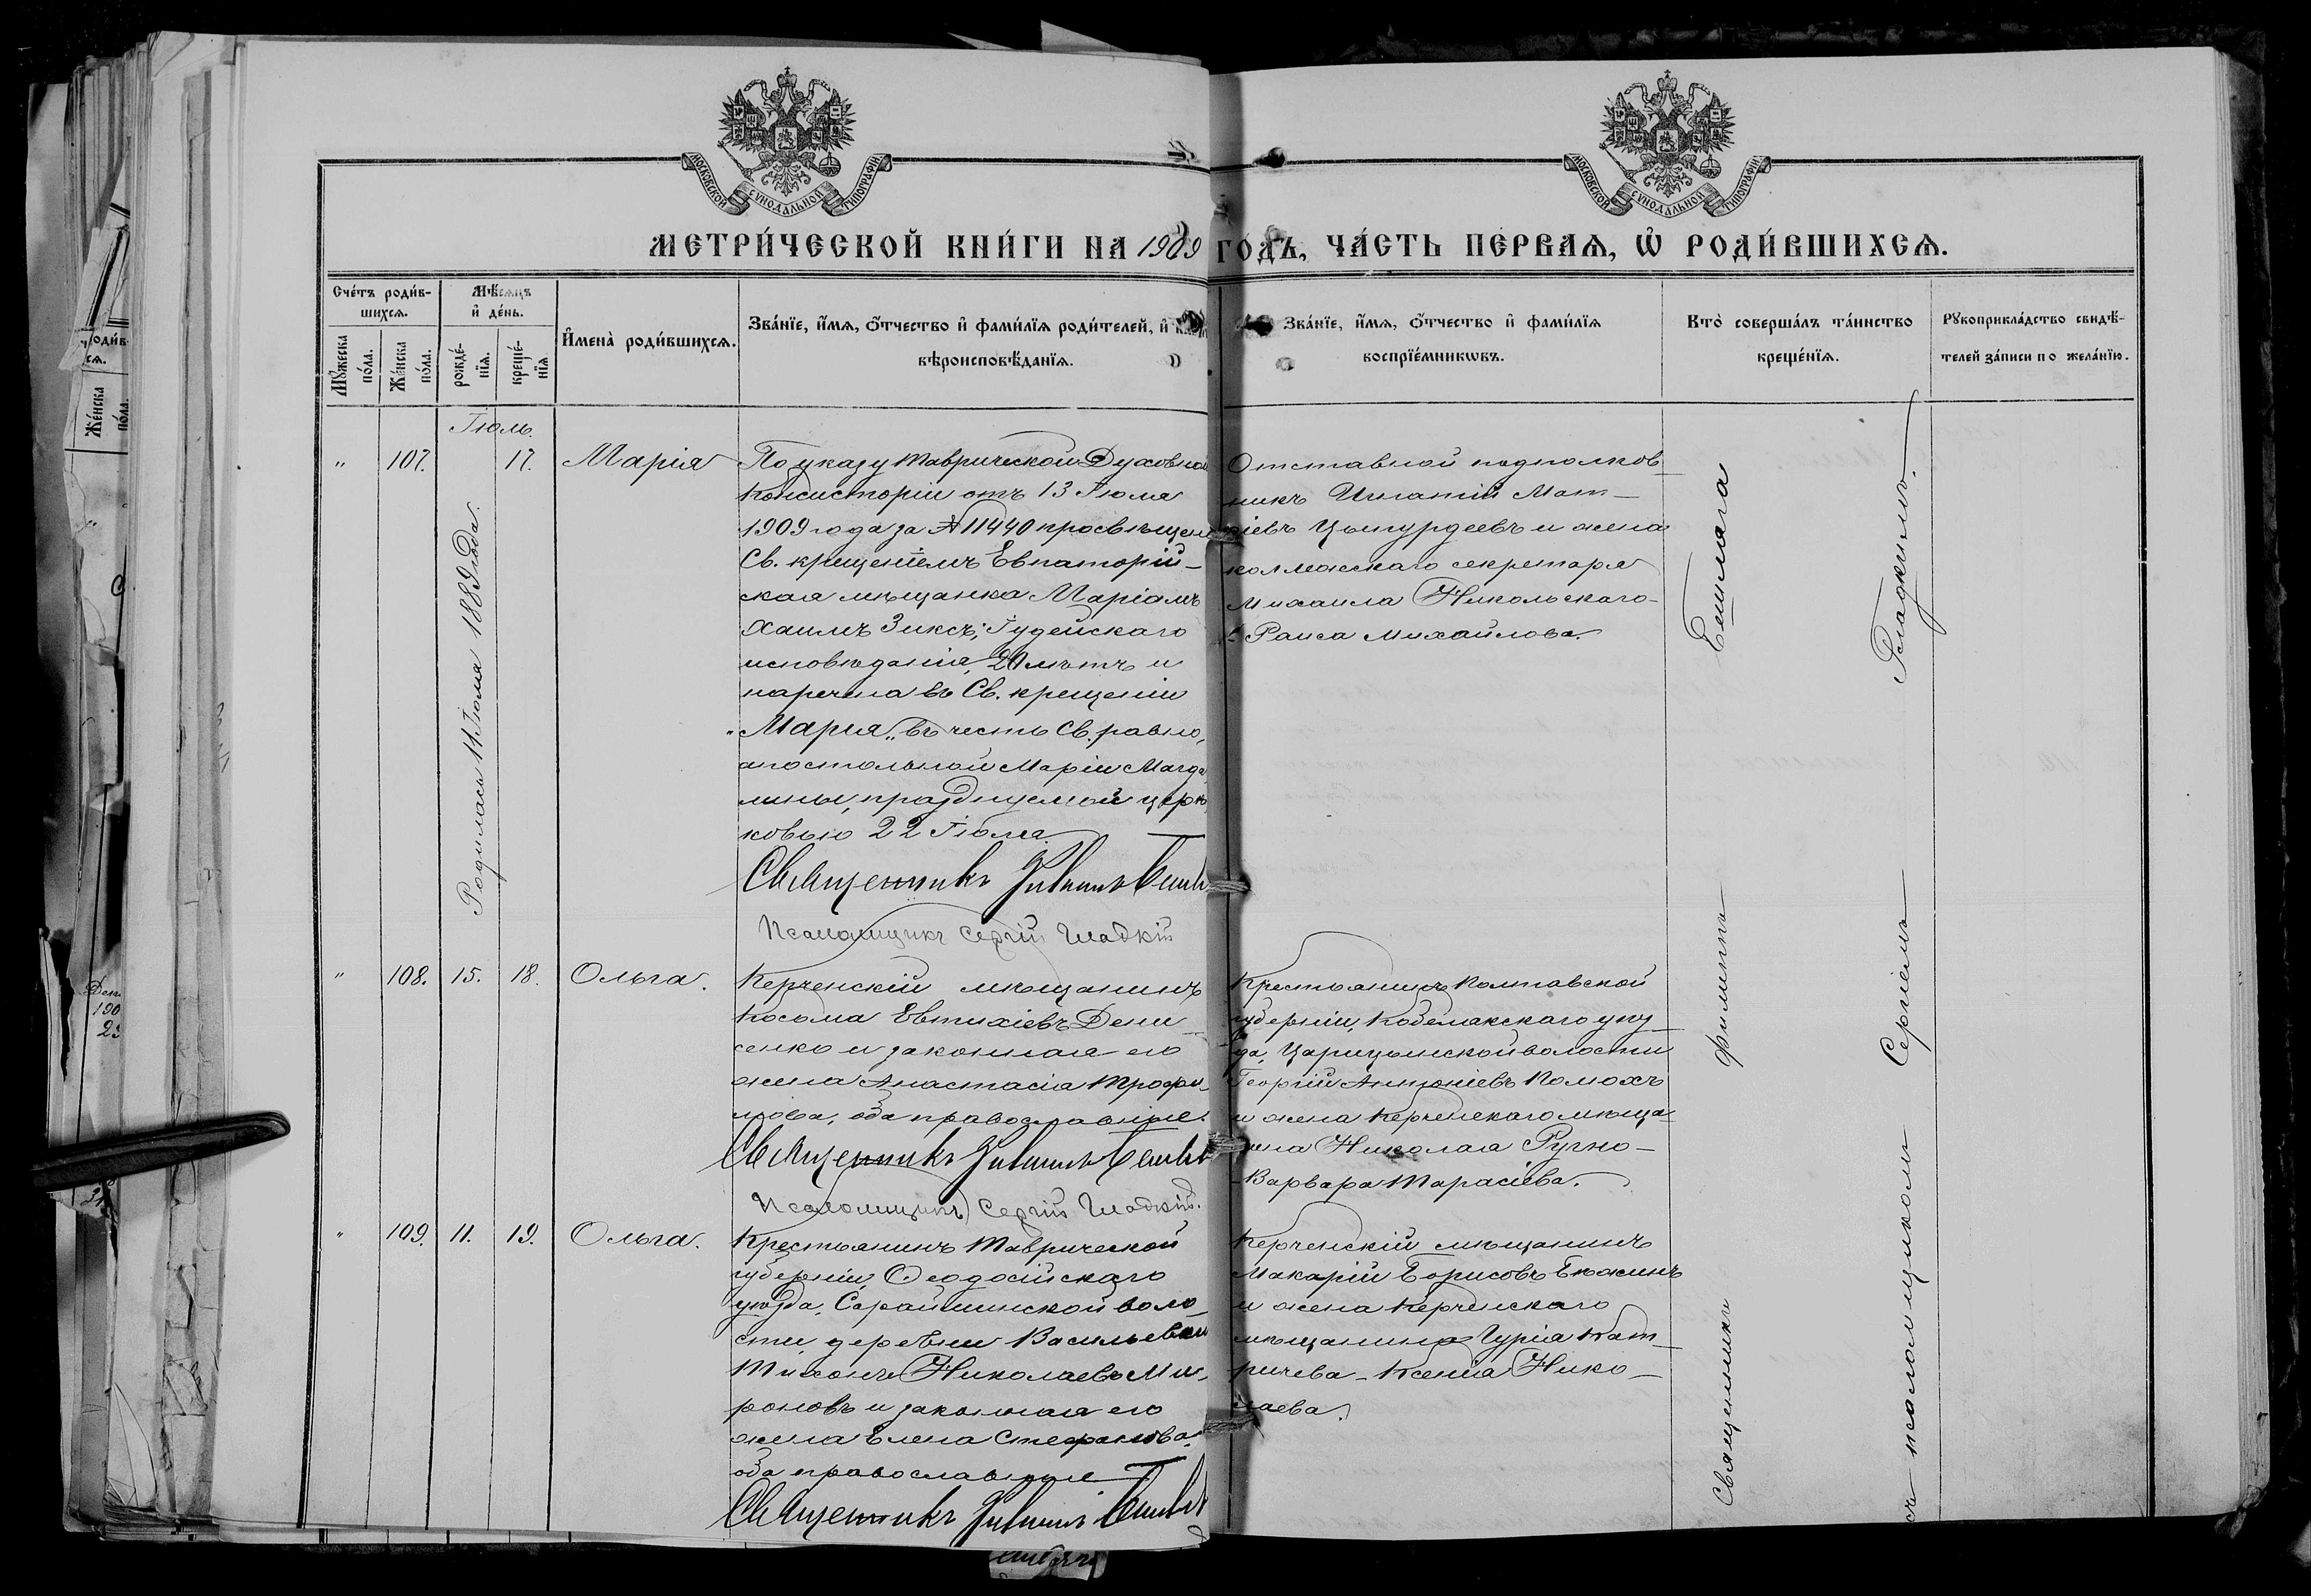 МОСКОВСКОЙ СѴНОДАЛЬНОЙ ТИПОГРАФІИ
МОСКОВСКОЙ СѴНОДАЛЬНОЙ ТИПОГРАФІИ
МЕТРИ́ЧЕСКОЙ КНИ́ГИ НА 1909 ГОДЪ, ЧА́СТЬ ПЕРВАЯ, Ѡ҆ РОДИ́ВШИХСЯ.
Сче́тъ роди́в-
шихся.
Му́жеска по́ла.
Же́нска по́ла.
Мѣ́сяцъ
и҆ де́нь.
рожде́-нїя.
креще́-нїя
И҆мена̀ роди́вшихся.
Зва́нїе, и҆́мя, ѻ҆́тчество и҆ фами́лїя роди́телей, и҆
вѣроисповѣ́данїя.
Зва́нїе, и҆́мя, ѻ҆́тчество и҆ фами́лїя
воспрїе́мникѡвъ.
Кто̀ соверша́лъ та́инство
креще́нїя.
Рꙋкоприкла́дство свидѣ́-
телей за́писи по жела́нїю.
Іюль.
" 107. 17. Марія
Родилась 11 Іюля 1889 года.
По указу Таврической Духовной
Консисторіи отъ 13 Іюля
1909 года за № 11440 просвѣщена
Св. крещеніемъ Евпаторій-
ская мѣщанка Маріамъ
Хаимъ Зиксъ, Іудейскаго
исповѣданія, 20 лѣтъ и
наречена въ Св. крещеніи
"Марія" въ честь Св. равно-
апостольной Маріи Магда-
лины, празднуемой цер-
ковью 22 Іюля.
Священникъ Филиппъ
Псаломщикъ Сергій Гладкій
Отставной подполков-
никъ Игнатій Мат-
ѳіевъ Цынурдеевъ и жена
коллежскаго секретаря
Михаила Никольскаго-
Раиса Михайлова.
" 108. 15. 18. Ольга.
Керченскій мѣщанинъ
Косьма Евтихіевъ Дени-
сенко и законная его
жена Анастасія Трофи-
мова, оба православные.
Священникъ Филиппъ
Псаломщикъ Сергій Гладкій.
Крестьянинъ Полтавской
губерніи, Кобелякскаго уѣз-
да, Царицынской волости
Георгій Антоніевъ Поможъ
и жена Керченскаго мѣща-
нина Николая Ручко-
Варвара Тарасіева.
" 109. 11. 19. Ольга.
Крестьянинъ Таврической
губерніи Ѳеодосійскаго
уѣзда, Сарайминской воло-
сти, деревни Васильевки
Тихонъ Николаевъ Ми-
роновъ и законная его
жена Елена Стефанова,
оба православные
Священникъ Филиппъ
Керченскій мѣщанинъ
Макарій Борисовъ Бѣжинъ
и жена Керченскаго
мѣщанина Гурія Кат-
ричева - Ксенія Нико-
лаева.
Священникъ Филиппъ
съ псаломщикомъ Сергіемъ Гладкимъ.